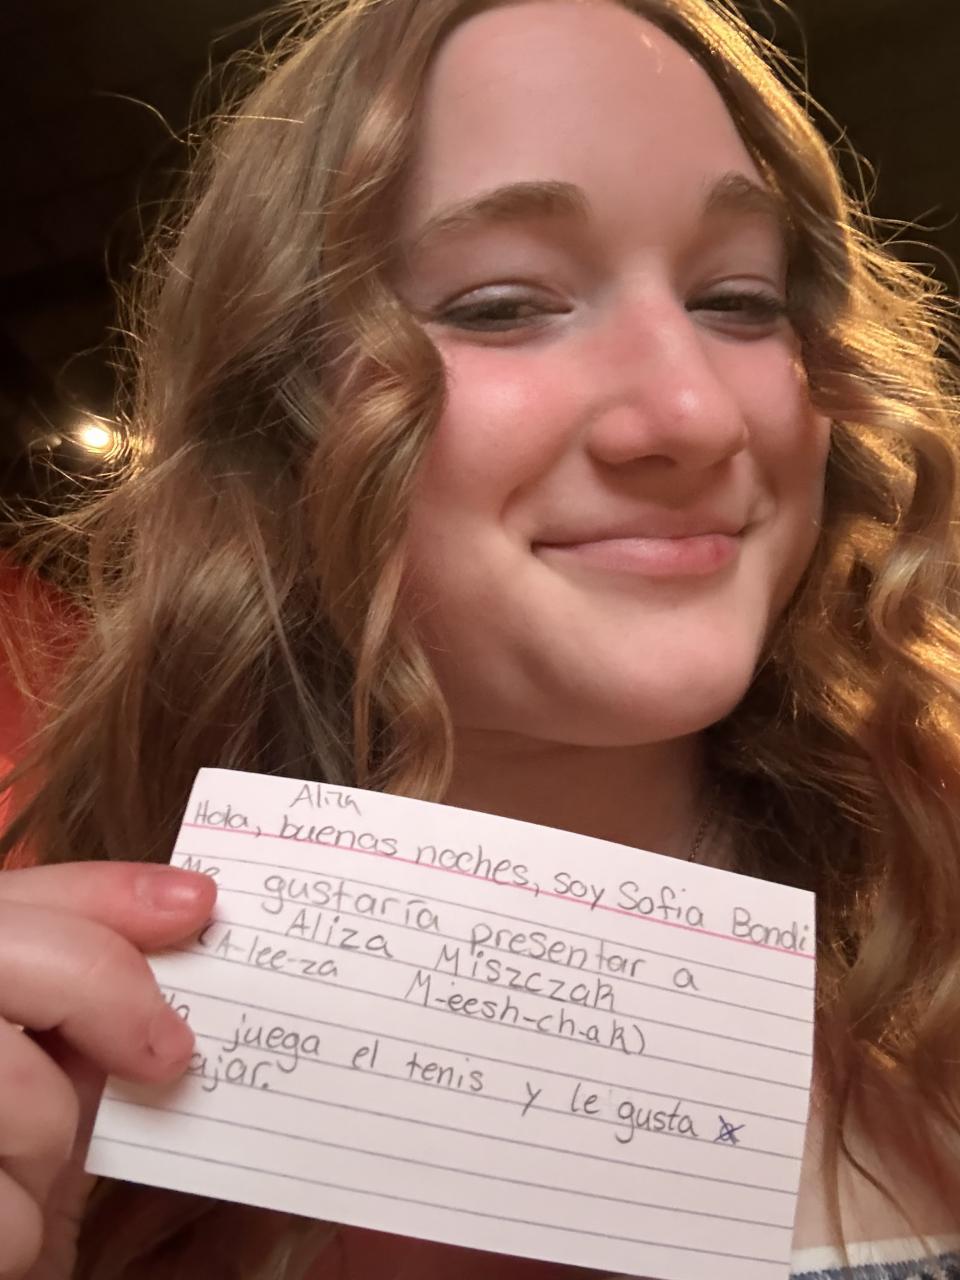 Aliza
Hola, buenas noches, soy Sofia Bondi
Me gustaría presentar a
Aliza Miszczak
(A-lee-za M-eesh-ch-ak)
juega el tenis y le gusta